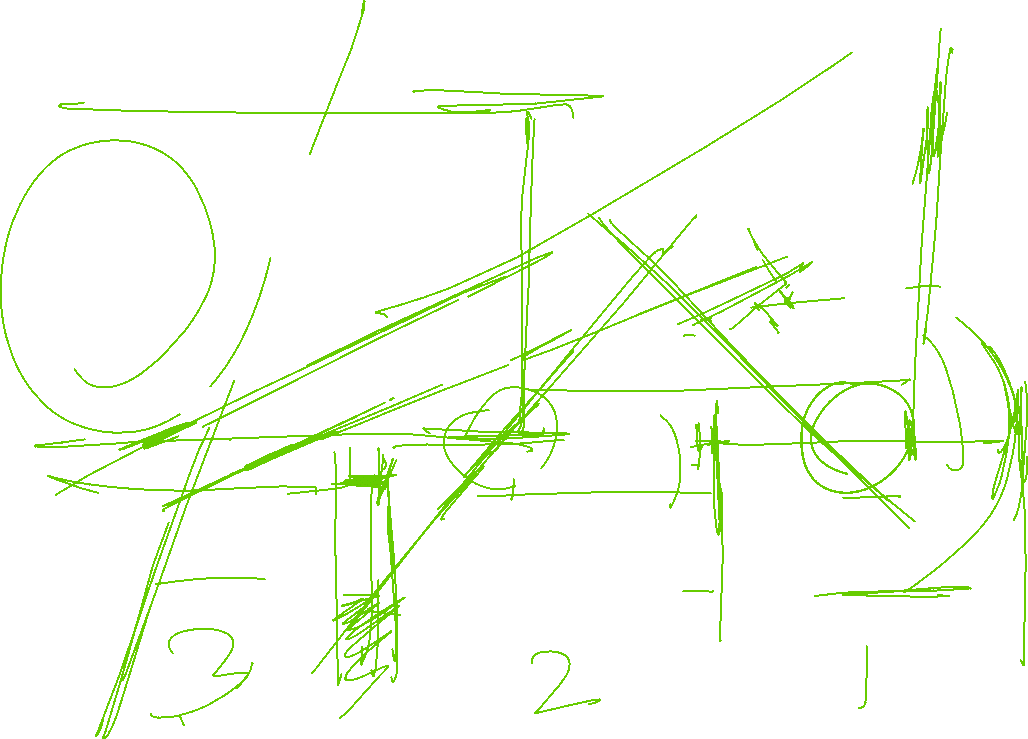 3 2 1